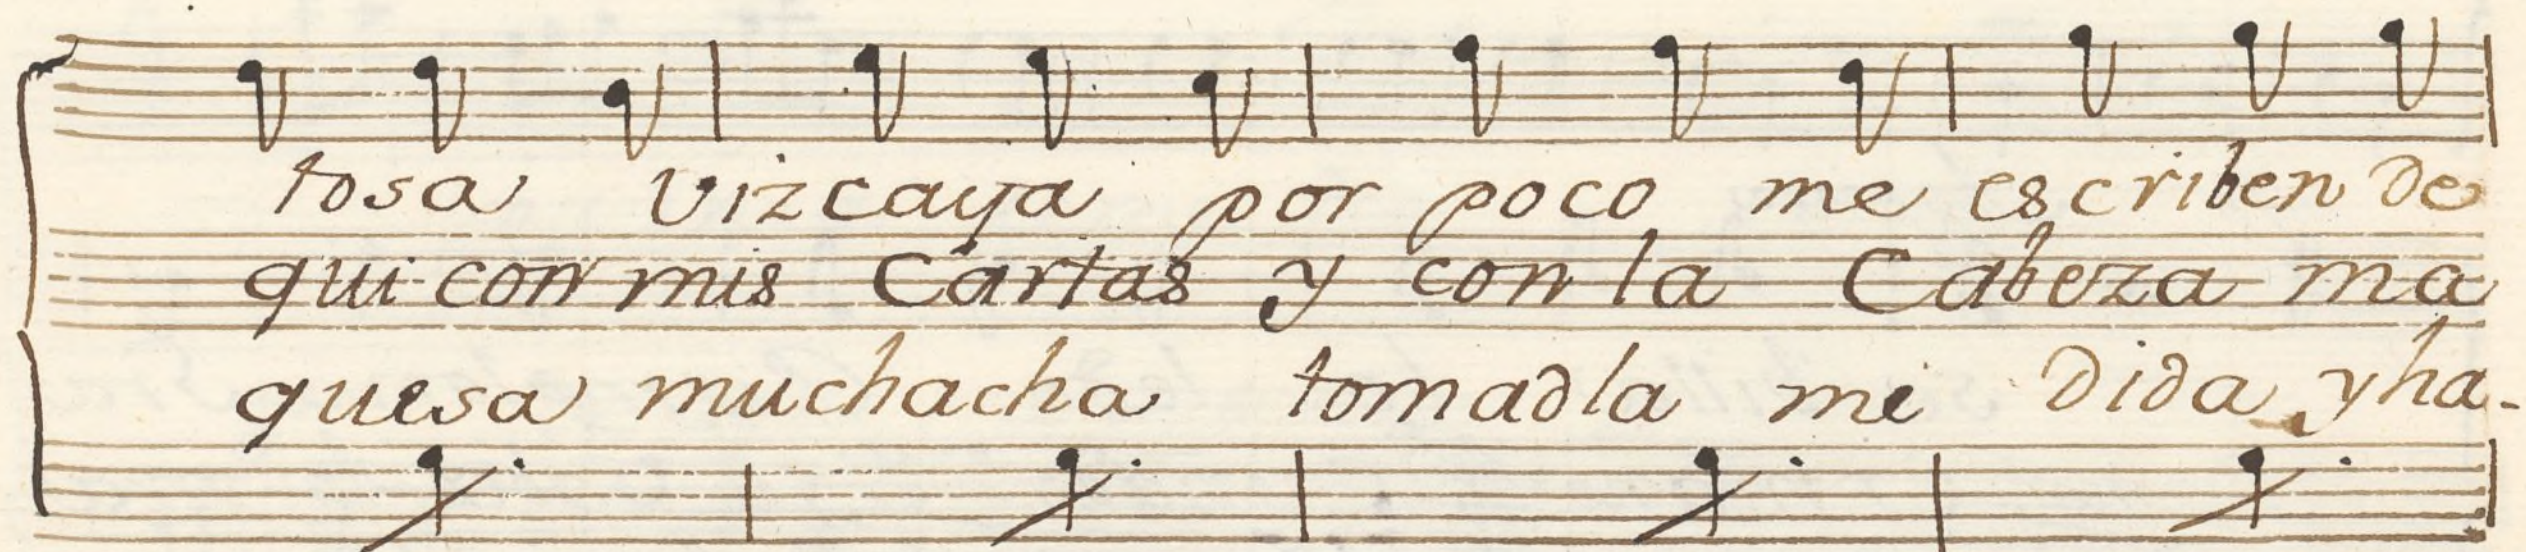 tosa vizcaya por poco me escriben de
qui con mis Cartas y con la Cabeza ma
quesa muchacha tomadla me dida y ha-